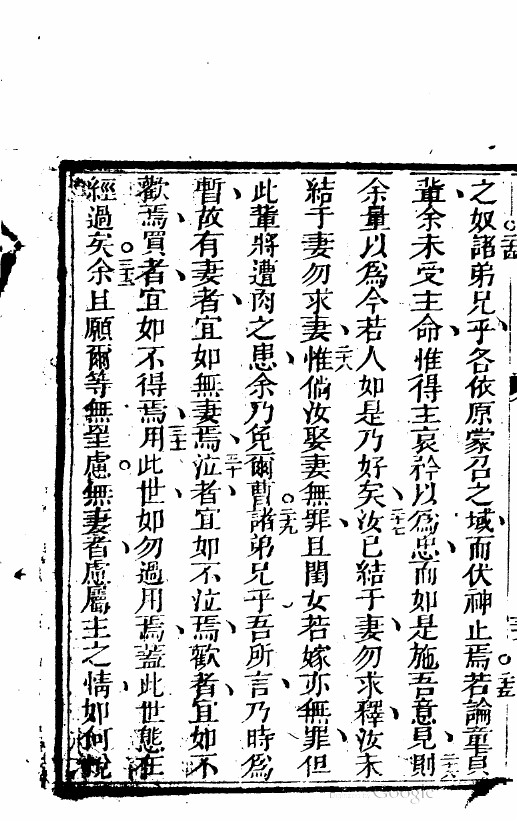 之奴諸弟兄乎各依原蒙召之域而伏神止焉若論童貞
輩余未受主命惟得主哀矜以為忠而如是施吾意見則
余量以為今若人如是乃好矣汝已結于妻勿求釋汝未
結于妻勿求妻惟倘汝娶妻無罪且閨女若嫁亦無罪但
此輩將遭肉之患余乃免爾曹諸弟兄乎吾所言乃時為
暫故有妻者宜如無妻焉泣者宜如不泣焉歡者宜如不
歡焉買者宜如不得焉用此世如勿過用焉蓋此世態在
經過矣余且願爾等無罣慮無妻者慮屬主之情如何悅
二十六
二十七
二十八
二十九
三十
三十一
Google